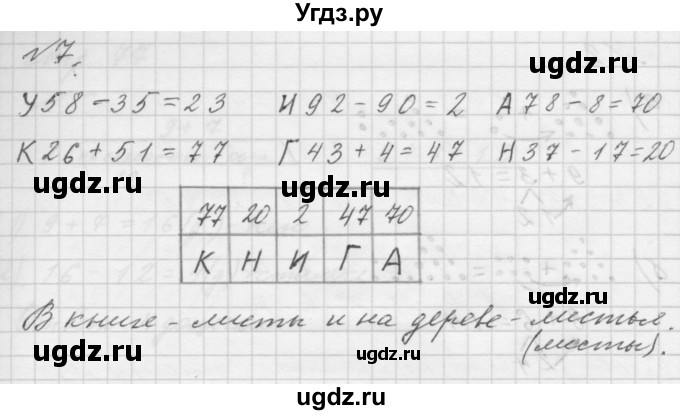 Угдз.ру
№7.
У 58 - 35 = 23 И 92 - 90 = 2 А 78 - 8 = 70
ugdz.ru ugdz.ru ugdz.ru
К 26 + 51 = 77 Г 43 + 4 = 47 Н 37 - 17 = 20
ugdz.ru ugdz.ru
77 20 2 47 70
К Н И Г А
ugdz.ru ugdz.ru
В книге - листы и на дереве - листья.
(листы).
ugdz.ru ugdz.ru
ugdz.ru ugdz.ru